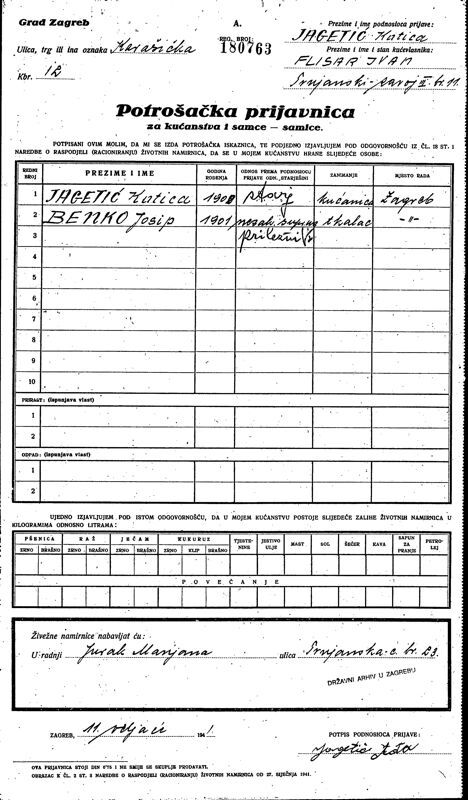 Grad Zagreb
A.
Prezime i ime podnosioca prijave:
JAGETIĆ Katica
Ulica, trg ili ina oznaka
REG. BROJ:
180763
Prezime i ime i stan kućevlasnika:
FLISAR IVAN
Kbr. 12
Trnjanski-zavoj II. br. 11.
Potrošačka prijavnica
za kućanstva i samce — samice.
POTPISANI OVIM MOLIM, DA MI SE IZDA POTROŠAČKA ISKAZNICA, TE PODJEDNO IZJAVLJUJEM POD ODGOVORNOŠĆU IZ ČL. 18 ST. 1
NAREDBE O RASPODJELI (RACIONIRANJU) ŽIVOTNIH NAMIRNICA, DA SE U MOJEM KUĆANSTVU HRANE SLIJEDEĆE OSOBE:
REDNI BROJ
PREZIME I IME
GODINA ROĐENJA
ODNOS PREMA PODNOSIOCU PRIJAVE ODN. STARJEŠINI
ZANIMANJE
MJESTO RADA
1 JAGETIĆ Katica 1908 kućanica Zagreb
2 BENKO Josip 1901 tkalac -"-
3
4
5
6
7
8
9
10
PRIRAST: (ispunjava vlast)
1
2
OTPAD: (ispunjava vlast)
1
2
UJEDNO IZJAVLJUJEM POD ISTOM ODGOVORNOŠĆU, DA U MOJEM KUĆANSTVU POSTOJE SLIJEDEĆE ZALIHE ŽIVOTNIH NAMIRNICA U
KILOGRAMIMA ODNOSNO LITRAMA:
PŠENICA RAŽ JEČAM KUKURUZ TJESTENINE JESTIVO ULJE MAST SOL ŠEĆER KAVA SAPUN ZA PRANJE PETROLEJ
ZRNO BRAŠNO ZRNO BRAŠNO ZRNO BRAŠNO ZRNO KLIP BRAŠNO
POVEĆANJE
Živežne namirnice nabavljat ću:
U radnji Jurak Marijana ulica Trnjanska c. br. 23.
DRŽAVNI ARHIV U ZAGREBU
ZAGREB, 11. veljače 1941
POTPIS PODNOSIOCA PRIJAVE:
Jagetić
OVA PRIJAVNICA STOJI DIN 0'75 I NE SMIJE SE SKUPLJE PRODAVATI.
OBRAZAC K ČL. 2 ST. 2 NAREDBE O RASPODJELI (RACIONIRANJU) ŽIVOTNIH NAMIRNICA OD 27. SIJEČNJA 1941.